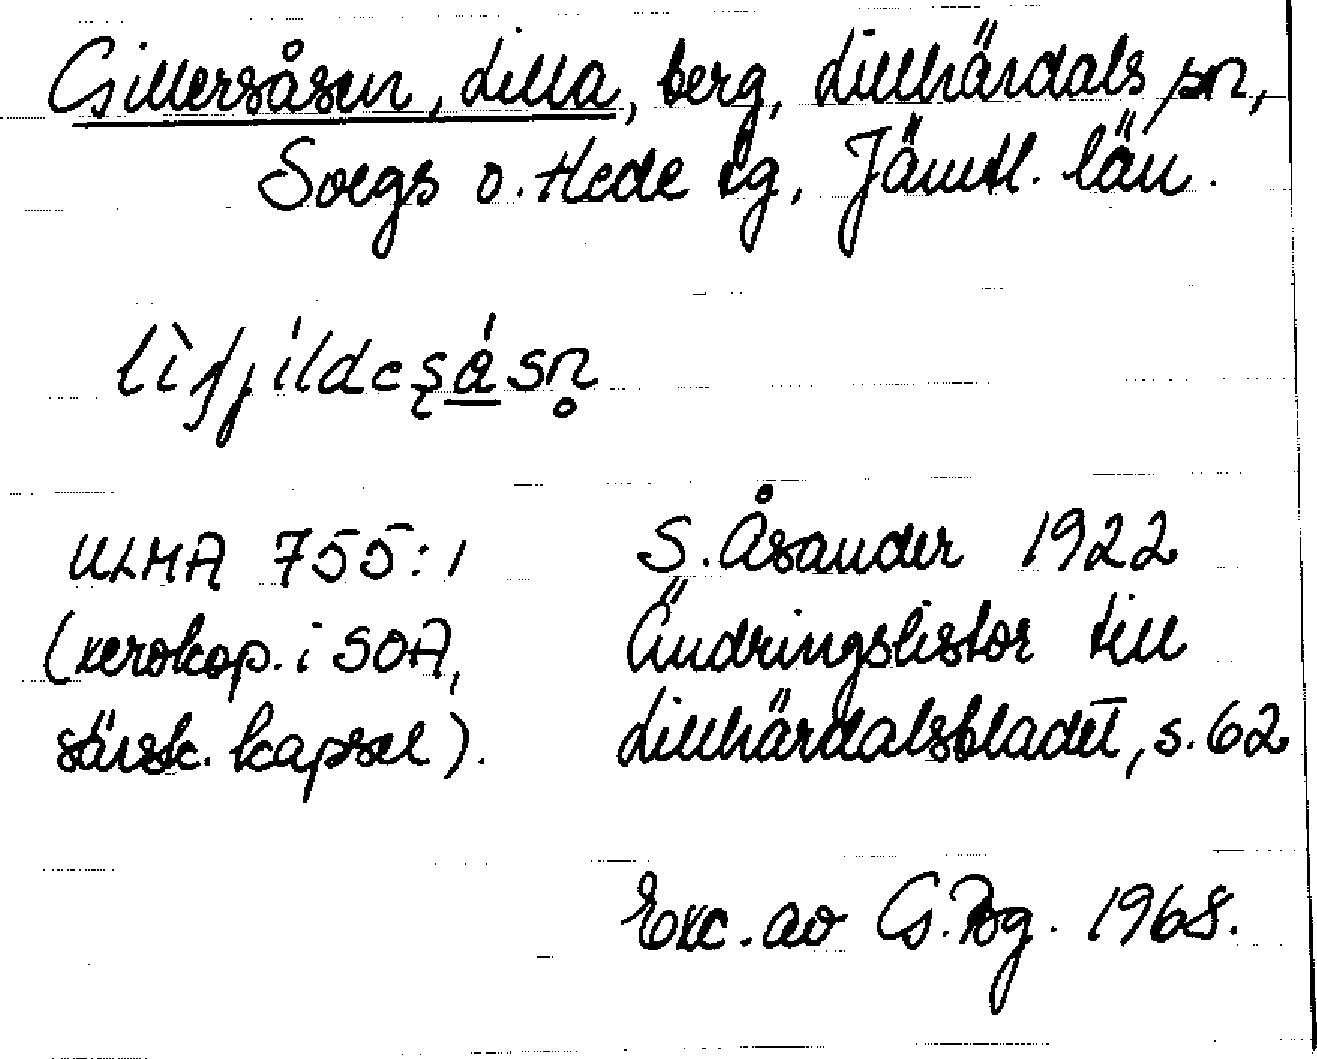 Gillersåsen, Lilla, berg, Lillhärdals sn,
Svegs o. Hede tg, Jämtl. län.
ULMA 755:1
(xerokop. i SOA,
särsk. kapsel).
S. Åsander 1922
Ändringslistor till
Lillhärdalsbladet, s. 62
Exc. av G. 1968.